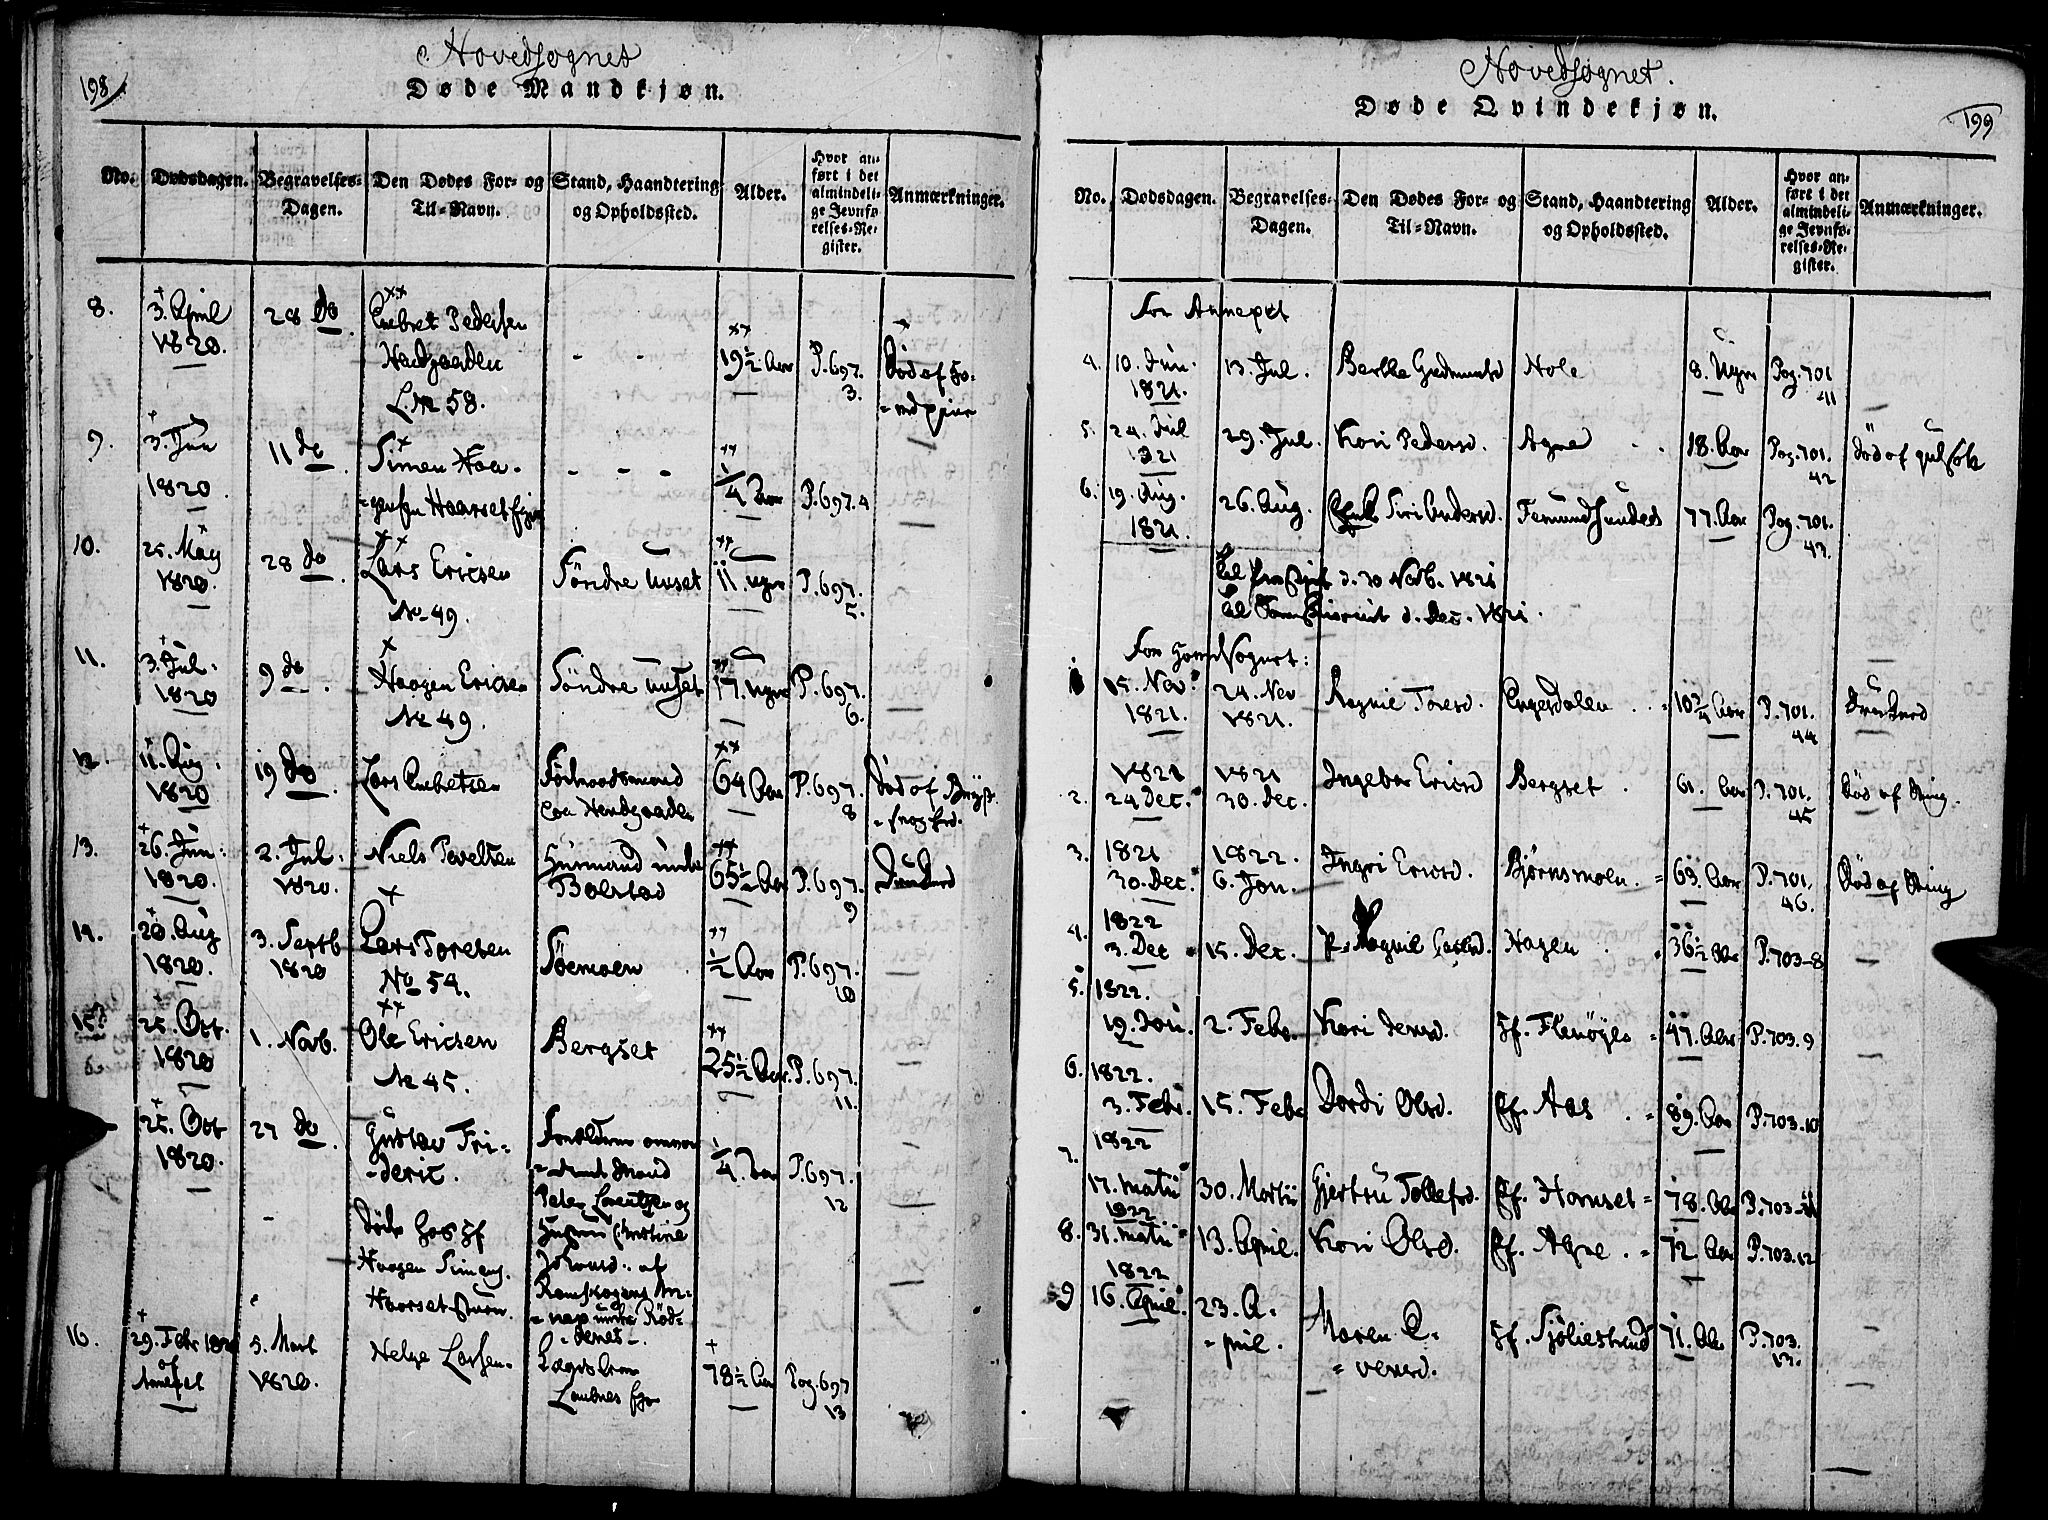 198
Hovedsognet
Døde Mandkjøn.
No.
Dødsdagen.
Begravelses-
Dagen.
Den Dødes For- og
Til-Navn.
Stand, Haandtering
og Opholdssted.
Alder.
Hvor an-
ført i det
almindeli-
ge Jevnfø-
relses-Re-
gister.
Anmærkninger.
8.
3. April
1820.
28 do
Embret Pedersen
L. No 58.
19½ Aar
P. 697.
3.
Død af
9.
3. Jun
1820.
11 do
Simen Haa-
¼ Aar
P. 697. 4
10.
25. May
1820.
28 do
Lars Ericsen
No 49.
Söndre Unset
11. Ugr
P. 697.
5.
11.
3. Jul.
1820
9 do
Haagen Ericsen
No 49.
Söndre Unset
17. Ugr
P. 697.
6.
12.
11. Aug.
1820
19 do
Lars Embretsen
Föderaadsmand
64 Aar
P. 697.
8
Död af Bryst-
13.
26. Jun.
1820.
2. Jul.
1820.
Niels Povelsen
Husmand under
Bolstad
65½ Aar
P. 697.
9
Druknet
14.
20. Aug
1820.
3. Septb
1820
Lars Toresen
No 54.
Söemoen
½ Aar
P. 697.
10
15.
25. Oct.
1820
1. Novb.
Ole Ericsen
No 45.
Bergset
25½ Aar
P. 697.
11.
25. Oct
1820.
27 do
Gustav Fri-
deric.
döde hos Gf
Haagen Simens.
Forældrene
Mand
Peter Lorentsen og
Hustru Christine
Johansd. af
¼ Aar
P. 697.
12
16.
29. Febr 1820
5. Mart
1820.
Helge Larsen
78½ Aar
Pag. 697
13
Hovedsognet.
Døde Qvindekjøn.
199
No.
Dødsdagen.
Begravelses-
Dagen.
Den Dødes For- og
Til-Navn.
Stand, Haandtering
og Opholdssted.
Alder.
Hvor an-
ført i det
almindeli-
ge Jevnfø-
relses-Re-
gister.
Anmærkninger.
For Annexet
4.
10. Jun.
1821.
13. Jul.
Berthe Gudmundsd
Hole
8. Ugr
Pag. 701
41
5.
24. Jul
1821
29. Jul.
Kari Pedersd.
Agne
18. Aar
Pag. 701.
42
Död af Gulsot
6.
19. Aug.
1821.
26. Aug.
Siri Andersd.
Femundsundet
77. Aar
Pag. 701.
43.
til Provstiet d. 30 Novb. 1821
d. Dec. 1821.
For Hovedsognet:
15. Nov.
1821.
24. Nov
1821.
Ragnil Toresd.
Engerdalen
10¾ Aar
P. 701.
44
Druknet
2.
1821
24. Dec.
1821
30. Dec.
Ingebor Ericsd
Bergset
61. Aar
P. 701.
45
Död af
3.
1821
30. Dec.
1822.
6. Jan.
Ingri Ericsd.
Bjørnsmoen
63. Aar
P. 701.
46.
Död af
4.
1822
3. Dec
15. Dec.
Ragnil
Hagen
36½ Aar
P. 703-8
5.
1822.
19. Jan.
2. Febr.
Kari Jensd.
Gf. Flenöyen
47. Aar
P. 703. 9
6.
1822.
3. Febr.
15. Febr
Dordi Olsd.
Gf. Aas
89. Aar
P. 703-10
7.
1822
17. Martii
30. Martii
Gjertru Tollefsd.
Gf. Hornset
78. Aar
P. 703-11
8.
1822
31. Martii
13. April.
Kari Olsd.
Gf. Agne
72. Aar
P. 703. 12
9
1822
16. April
23. A-
pril.
Maren E-
versd.
Gf. Sjöliestrand
71. Aar
P. 703.
13.